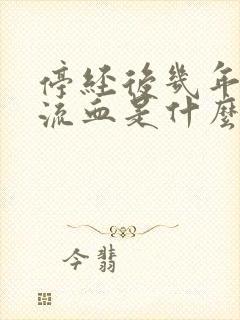 停經後幾年
流血是什麼
今翡